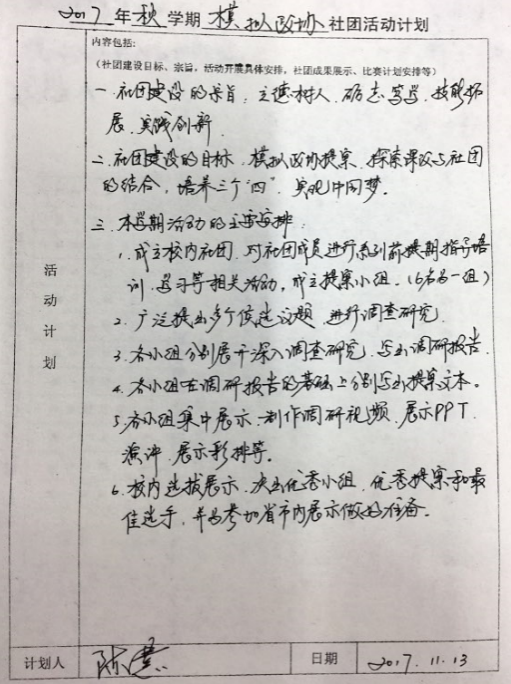 2017年秋学期模拟政协社团活动计划
内容包括:
(社团建设目标、宗旨,活动开展具体安排,社团成果展示、比赛计划安排等)
一.社团建设的宗旨:立德树人、砺志笃学、技能拓
展、实践创新.
二.社团建设的目标:模拟政协提案、探索课改与社团
的结合,培养三个"四"、实现中国梦.
三.本学期活动的主要安排:
1.成立校内社团.对社团成员进行系列前提期指导培
训、学习等相关活动,成立提案小组.(6名为一组)
2.广泛提出多个候选议题,进行调查研究.
3.各小组分别展开深入调查研究,写出调研报告.
4.各小组在调研报告的基础上分别写出提案文本。
5.各小组集中展示、制作调研视频、展示PPT
演评、展示彩排等。
6.校内选拔展示,决出优秀小组、优秀提案和最
佳选手,并为参加省市内展示做好准备。
活动计划
计划人 陈
日期 2017.11.13